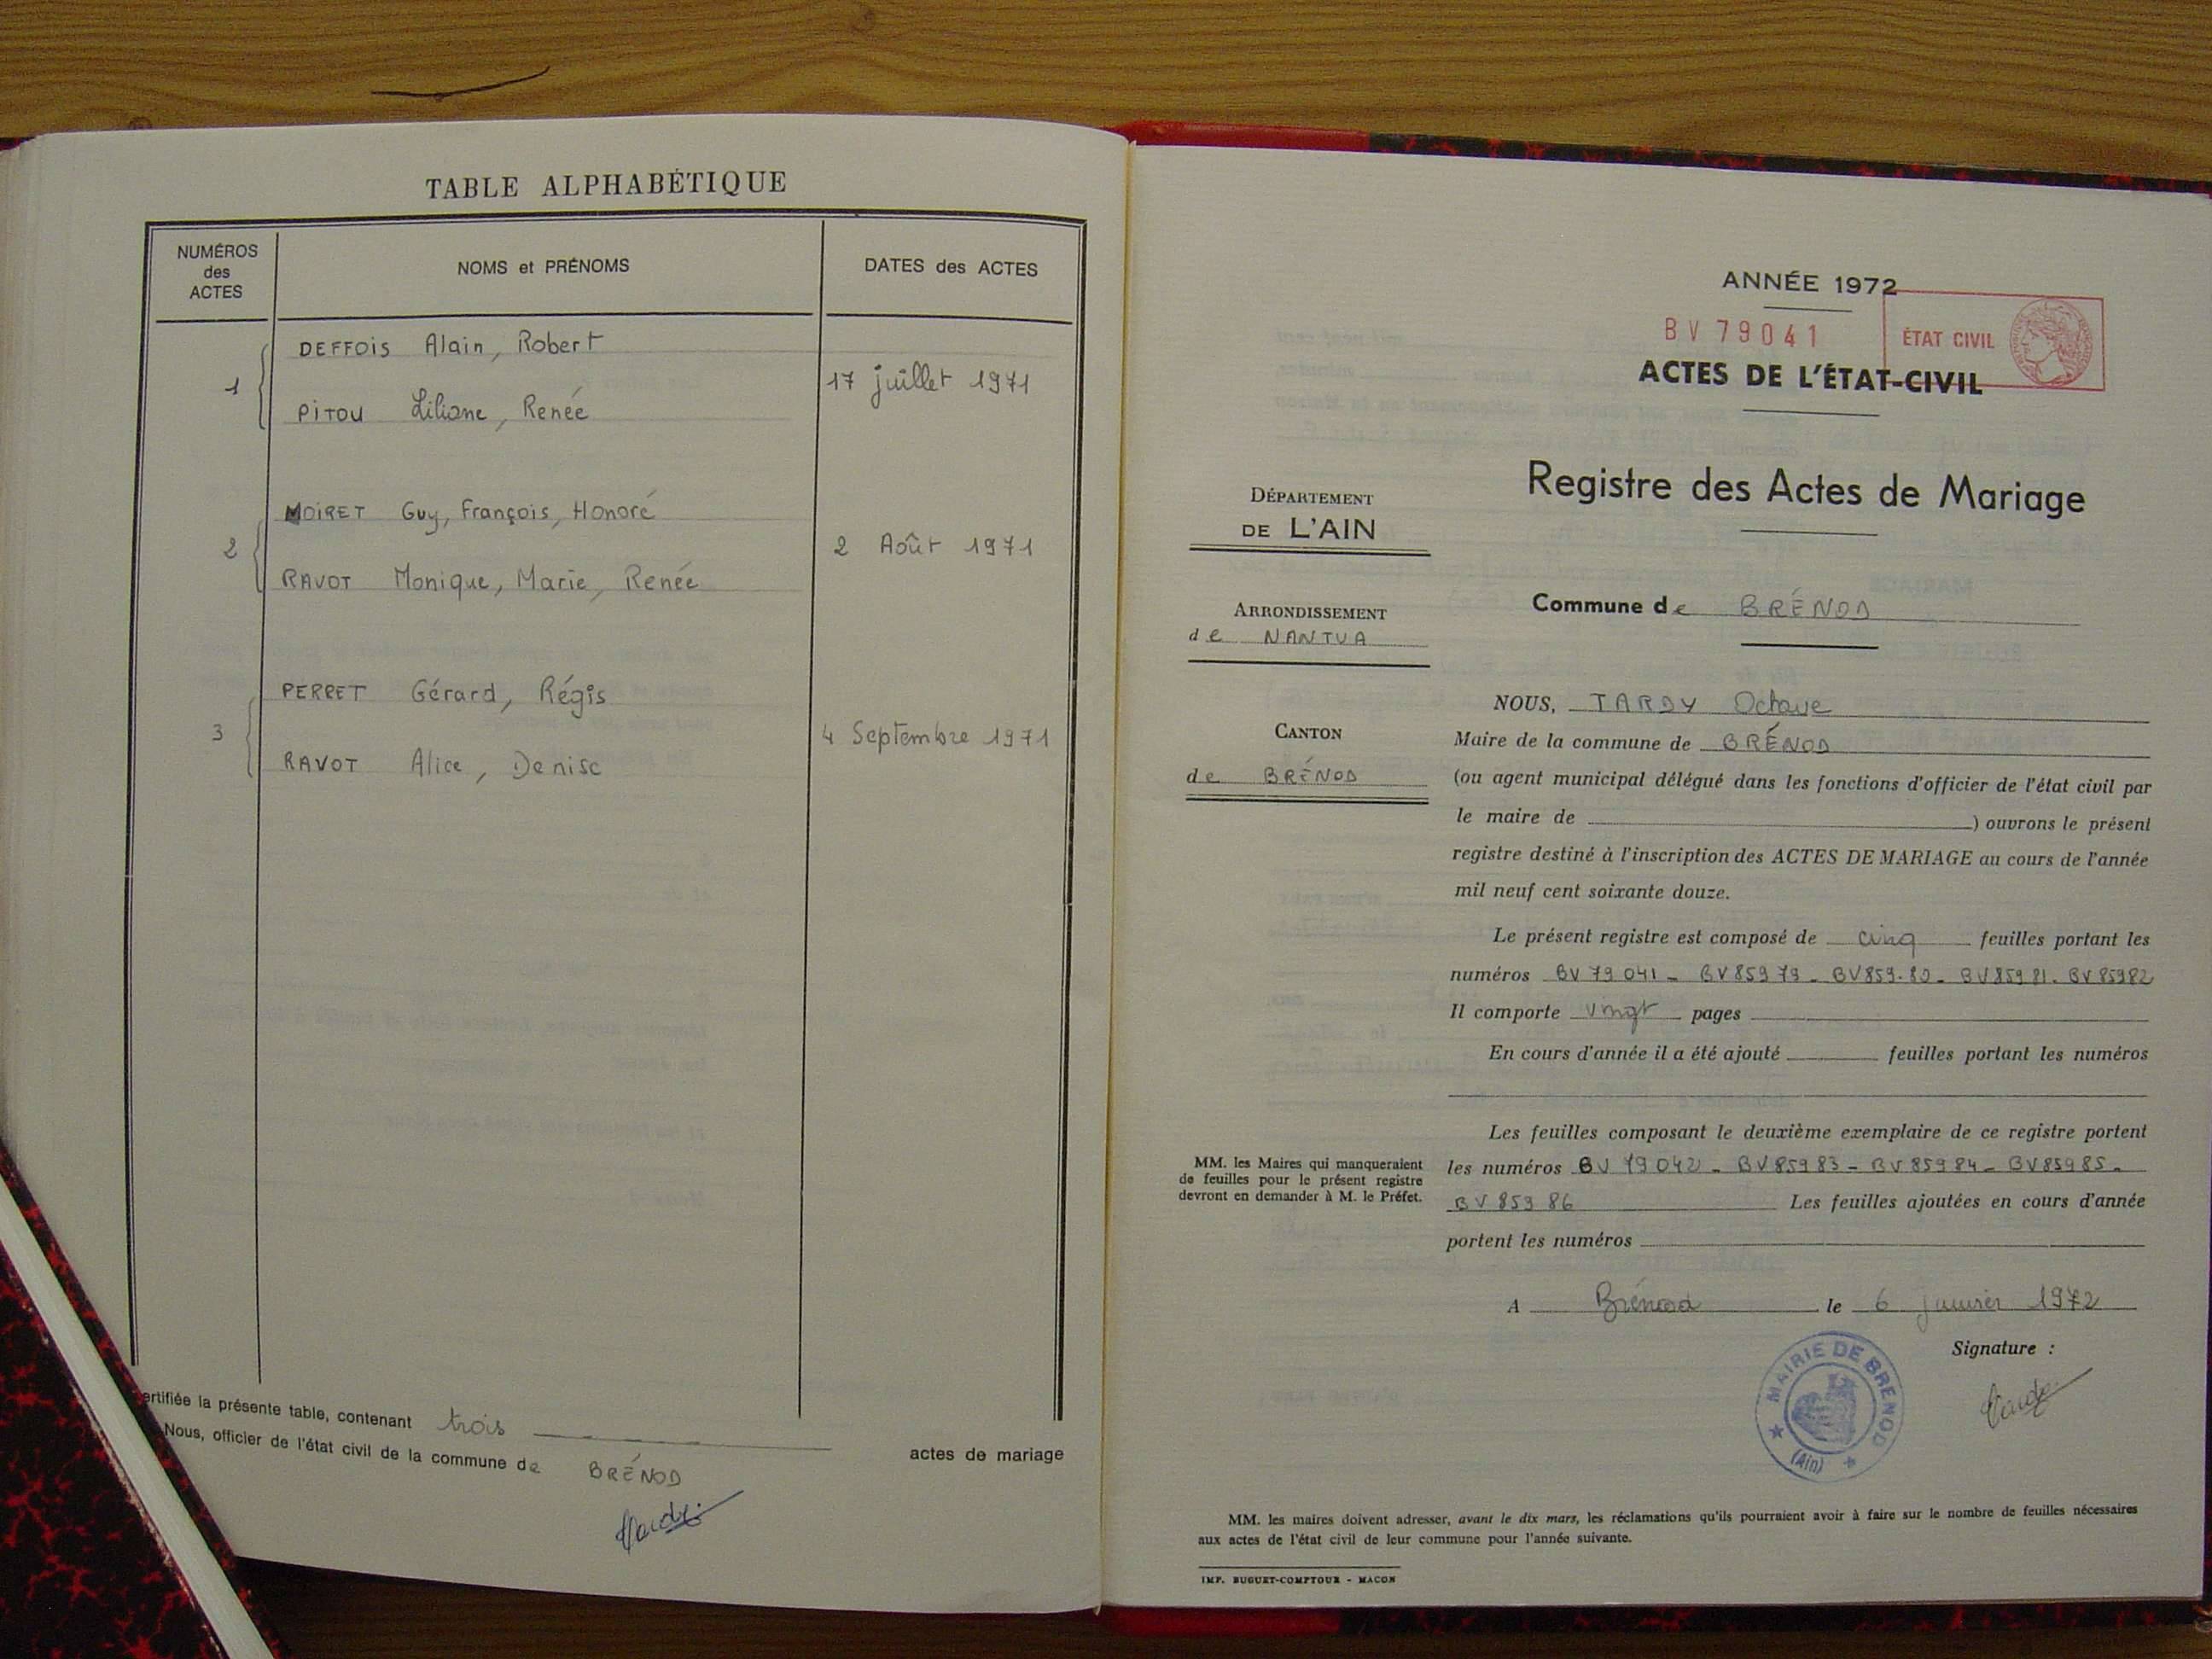 TABLE ALPHABÉTIQUE
NUMÉROS
des
ACTES
NOMS et PRÉNOMS
DATES des ACTES
1
DEFFOIS Alain, Robert
PITOU Liliane, Renée
17 juillet 1971
2
MOIRET Guy, François, Honoré
RAVOT Monique, Marie, Renée
2 Août 1971
3
PERRET Gérard, Régis
RAVOT Alice, Denise
4 Septembre 1971
ertifiée la présente table, contenant trois actes de mariage
Nous, officier de l'état civil de la commune de BRÉNOD
ANNÉE 1972
BV 79041
ÉTAT CIVIL
ACTES DE L'ÉTAT-CIVIL
Registre des Actes de Mariage
DÉPARTEMENT
DE L'AIN
ARRONDISSEMENT
de NANTUA
CANTON
de BRÉNOD
Commune de BRÉNOD
NOUS, TARDY Octave
Maire de la commune de BRÉNOD
(ou agent municipal délégué dans les fonctions d'officier de l'état civil par
le maire de ) ouvrons le présent
registre destiné à l'inscription des ACTES DE MARIAGE au cours de l'année
mil neuf cent soixante douze.
Le présent registre est composé de cinq feuilles portant les
numéros BV 79 041 - BV 859 79 - BV 859.80 - BV 859 81. BV 85982
Il comporte vingt pages
En cours d'année il a été ajouté feuilles portant les numéros
Les feuilles composant le deuxième exemplaire de ce registre portent
les numéros BV 79 042 - BV 859 83 - BV 859 84 - BV 859 85 -
BV 859 86 Les feuilles ajoutées en cours d'année
portent les numéros
MM. les Maires qui manqueraient
de feuilles pour le présent registre
devront en demander à M. le Préfet.
A Brénod le 6 janvier 1972
Signature :
MAIRIE DE BRENOD
(Ain)
MM. les maires doivent adresser, avant le dix mars, les réclamations qu'ils pourraient avoir à faire sur le nombre de feuilles nécessaires
aux actes de l'état civil de leur commune pour l'année suivante.
IMP. BUGUET-COMPTOUR - MACON